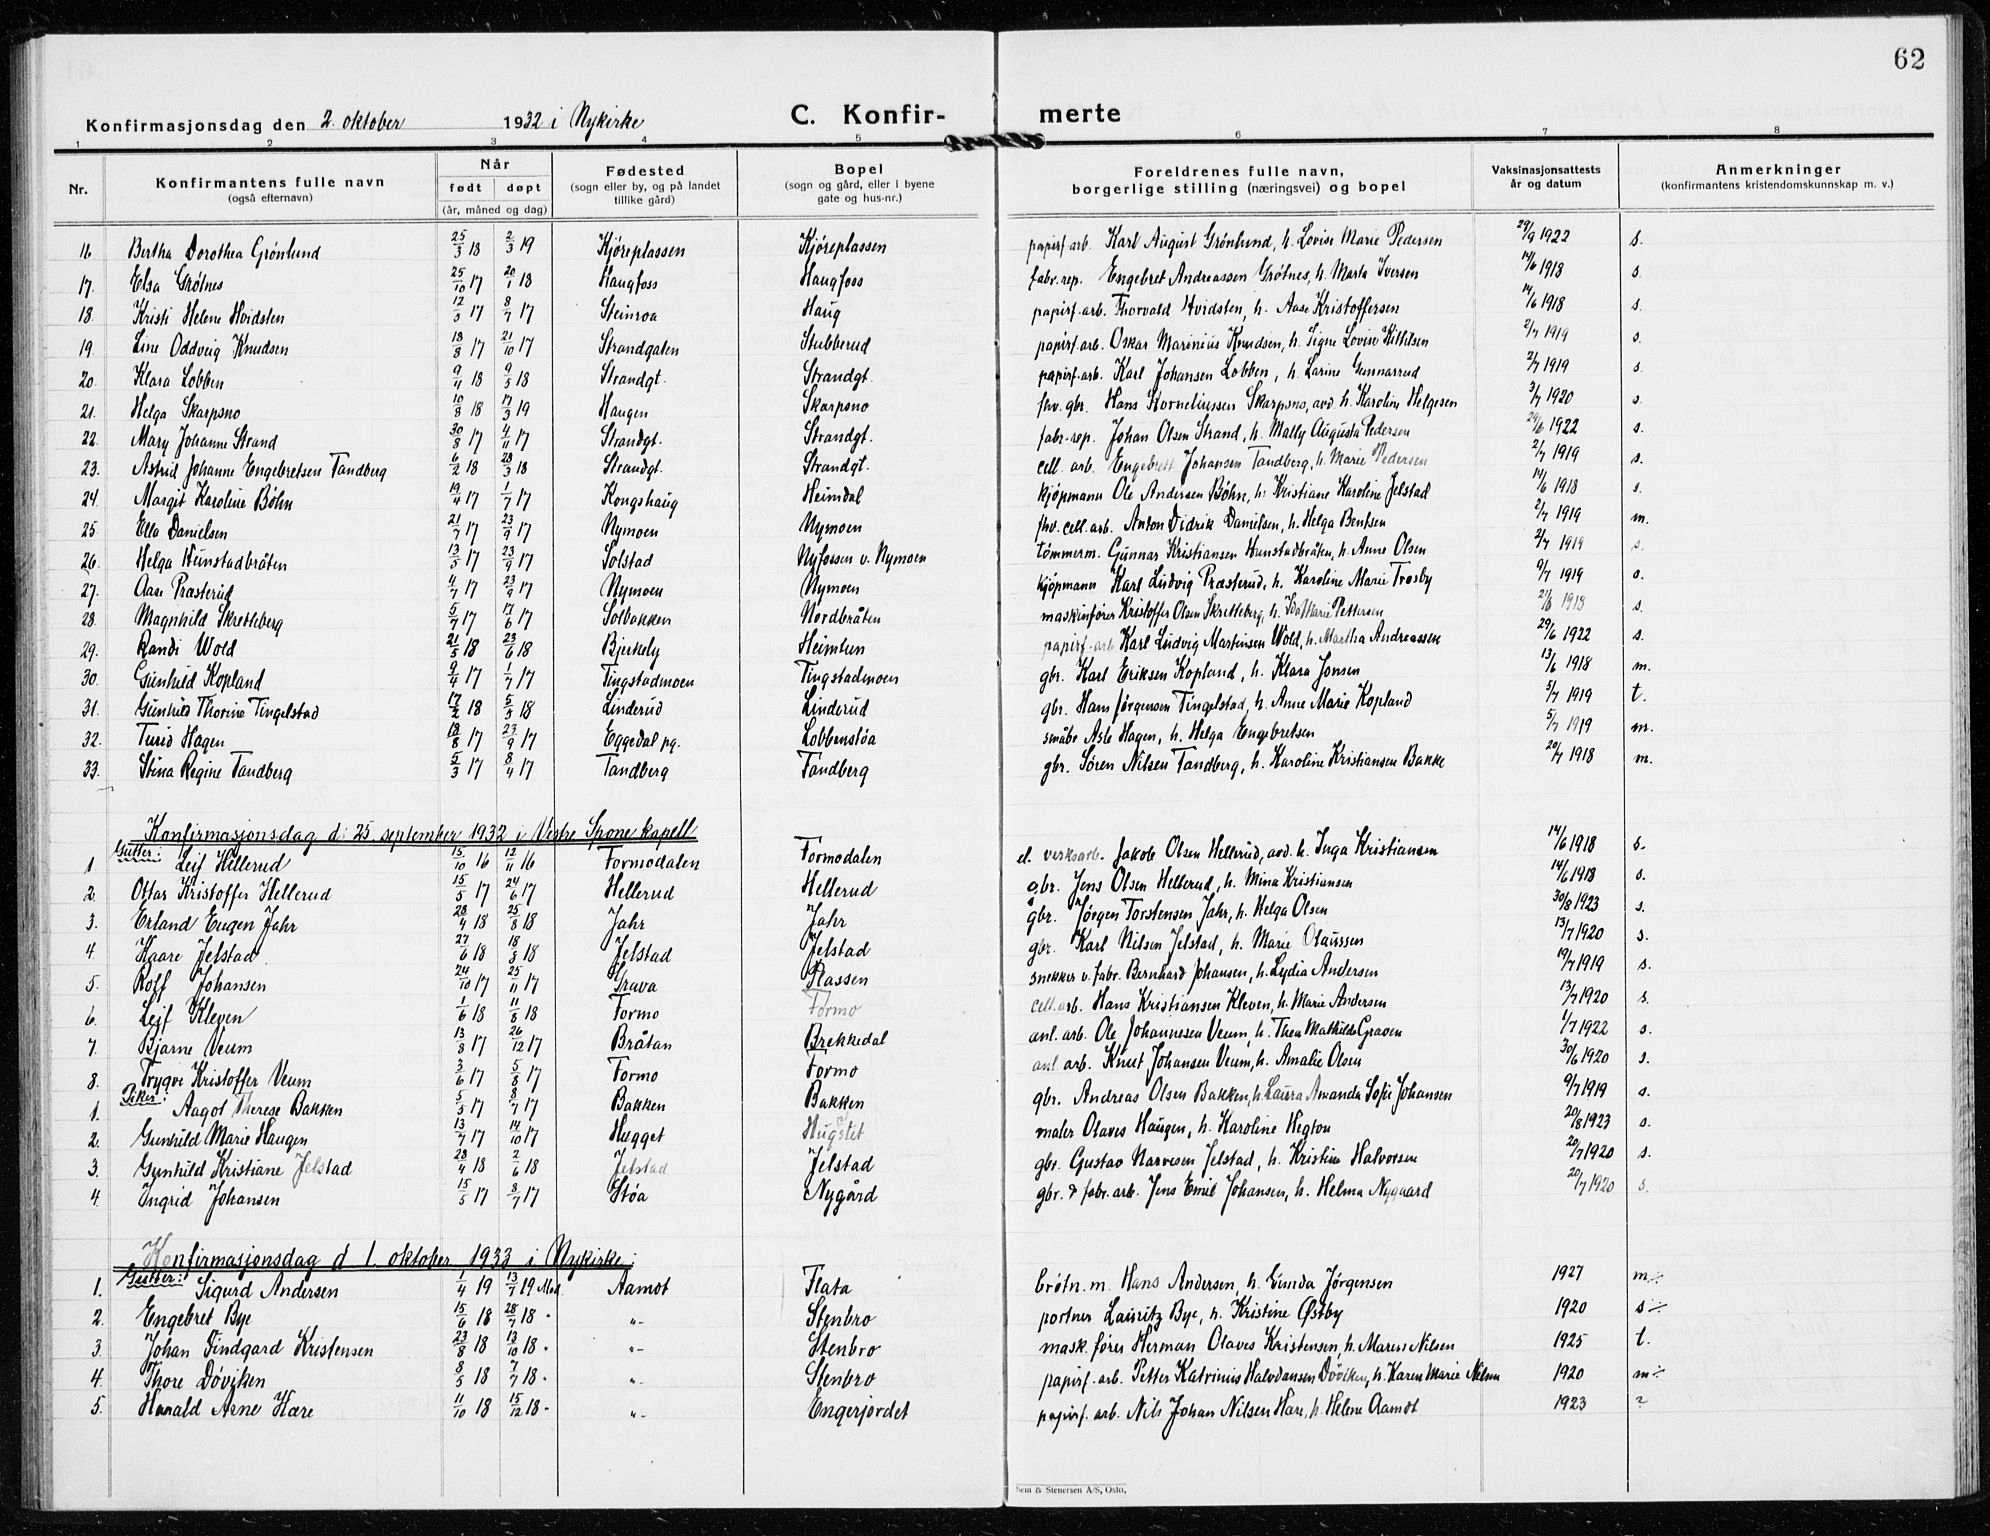 62
Konfirmasjonsdag den 2. oktober 1932 i Nykirke C. Konfir- merte
1 2 3 4 5 6 7 8
Nr. Konfirmantens fulle navn (også efternavn) Når født døpt (år, måned og dag) Fødested (sogn eller by, og på landet tillike gård) Bopel (sogn og gård, eller i byene gate og hus-nr.) Foreldrenes fulle navn, borgerlige stilling (næringsvei) og bopel Vaksinasjonsattests år og datum Anmerkninger (konfirmantens kristendomskunnskap m. v.)
16 Bertha Dorothea Grönlund 25/3 18 2/3 19 Kjöreplassen Kjöreplassen papirf. arb. Karl August Grönlund, h. Lovise Marie Pedersen 29/9 1922 s.
17. Elsa Grötnes 25/10 17 20/1 18 Haugfoss Haugfoss fabr. rep. Engebret Andreassen Grötnes, h. Marta Iversen 14/6 1918 s.
18. Kristi Helene Hvidsten 12/3 17 8/7 17 Steinroa Haug papirf. arb. Thorvald Hvidsten, h. Aase Kristoffersen 14/6 1918 s.
19. Line Oddveig Knudsen 18/8 17 21/10 17 Strandgaten Stubberud papirf. arb. Oskar Marinius Knudsen, h. Signe Lovise Kittilsen 2/7 1919 s.
20. Klara Lobben 9/4 18 9/5 18 Strandgt. Strandgt. papirf. arb. Karl Johansen Lobben, h. Larine Gunnarrud 2/7 1919 s.
21. Helga Skarpsno 10/8 18 17/3 19 Haugen Skarpsno fhv. gbr. Hans Korneliussen Skarpsno, avd. h. Karoline Helgesen 3/7 1920 s.
22. Mary Johanne Strand 30/8 17 4/11 17 Strandgt. Strandgt. fabr. rep. Johan Olsen Strand, h. Mally Augusta Pedersen 29/6 1922 s.
23. Astrid Johanne Engebretsen Tandberg 6/2 18 28/3 18 Strandgt. Strandgt. cell. arb. Engebrett Johansen Tandberg, h. Marie Pedersen 2/7 1919 s.
24. Margit Karoline Böhn 19/4 17 1/7 17 Kongshaug Heimdal kjöpmann Ole Andersen Böhn, h. Kristiane Karoline Jelstad 14/6 1918 s.
25. Ella Danielsen 21/7 17 23/9 17 Nymoen Nymoen fhv. cell. arb. Anton Didrik Danielsen, h. Helga Bentsen 2/7 1919 m.
26. Helga Hunstadbråten 13/5 17 23/9 17 Solstad Nyfossen v. Nymoen tömmerm. Gunnar Kristiansen Hunstadbråten, h. Anne Olsen 2/7 1919 s.
27. Aase Præsterud 4/7 17 23/9 17 Nymoen Nymoen kjöpmann Karl Ludvig Præsterud, h. Karoline Marie Trosby 9/7 1919 s.
28. Magnhild Skretteberg 5/7 17 17/6 17 Solbakken Nordbråten maskinförer Kristoffer Olsen Skretteberg, h. Ida Marie Pettersen 21/6 1918 s.
29. Randi Wold 21/5 18 23/6 18 Bjerkely Heimlun papirf. arb. Karl Ludvig Martinsen Wold, h. Martha Andreassen 29/6 1922 s.
30. Gunhild Kopland 9/4 17 1/7 17 Tingstadmoen Tingstadmoen gbr. Karl Eriksen Kopland, h. Klara Jonsen 13/6 1918 m.
31. Gunhild Thorine Tingelstad 17/2 18 5/5 18 Linderud Linderud gbr. Hans Jørgensen Tingelstad, h. Anne Marie Kopland 5/7 1919 t.
32. Turid Hagen 18/8 17 23/9 17 Eggedal pg. Lobbenstøa småbr. Asle Hagen, h. Helga Engebretsen 5/7 1919 m.
33. Stina Regine Tandberg 5/3 17 8/4 17 Tandberg Tandberg gbr. Sören Nilsen Tandberg, h. Karoline Kristiansen Bakke 20/7 1918 m.
Konfirmasjonsdag d: 25. september 1932 i Vestre Spone kapell
Gutter:
1 Leif Hellerud 15/10 16 12/11 16 Formodalen Formodalen el. verksarb. Jakob Olsen Hellerud, avd. h. Inga Kristiansen 14/6 1918 s.
2. Ottar Kristoffer Hellerud 15/5 17 24/6 17 Hellerud Hellerud gbr. Jens Olsen Hellerud, h. Mina Kristiansen 14/6 1918 s.
3. Erland Eugen Jahr 28/4 18 25/8 18 Jahr Jahr gbr. Jörgen Torstensen Jahr, h. Helga Olsen 30/8 1923 s.
4. Kaare Jelstad 27/6 18 18/8 18 Jelstad Jelstad gbr. Karl Nilsen Jelstad, h. Marie Olaussen 13/7 1920 s.
5. Rolf Johansen 24/10 17 25/11 17 Grava Plassen snekker v. fabr. Bernhard Johansen, h. Lydia Andersen 19/7 1919 s.
6. Leif Kleven 1/6 18 11/8 18 Formo Formo cell. arb. Hans Kristiansen Kleven, h. Marie Andersen 13/7 1920 s.
7. Bjarne Veum 13/8 17 26/12 17 Bråtan Brekkedal anl. arb. Ole Johannesen Veum, h. Thea Mathilde Graven 1/7 1922 s.
8. Trygve Kristoffer Veum 3/6 17 5/8 17 Formo Formo anl arb. Knut Johansen Veum, h. Amalie Olsen 30/6 1920 s.
Piker:
1. Aagot Therese Bakken 5/5 17 8/7 17 Bakken Bakken gbr. Andreas Olsen Bakken, h. Laura Amanda Sofie Johansen 9/7 1919 s.
2. Gunhild Marie Haugen 13/7 17 14/10 17 Hugget Hugstet maler Olaves Haugen, h. Karoline Hegton 20/8 1923 s.
3. Gunhild Kristiane Jelstad 28/4 18 2/6 18 Jelstad Jelstad gbr. Gustav Narvesen Jelstad, h. Kristine Halvorsen 20/7 1920 s.
4. Ingrid Johansen 15/5 17 8/7 17 Støa Nygård gbr. & fabr. arb. Jens Emil Johansen, h. Helma Nygaard 20/7 1920 s.
Konfirmasjonsdag d 1. oktober 1933 i Nykirke:
Gutter:
1. Sigurd Andersen 1/4 19 13/7 19 Mod. Aamot Flata brötn. m. Hans Andersen, h. Gunda Jørgensen 1927 m÷
2. Engebret Bye 15/6 18 28/7 18 " "- Stenbro portner Lauritz Bye, h. Kristine Østby 1920 s÷
3. Johan Findgard Kristensen 23/8 18 13/10 18 " "- Stenbro mask. fører Herman Olaves Kristensen, h. Maren Nilsen 1925 t.
4. Thore Döviken 8/5 18 7/7 18 - "- Stenbro papirf. arb. Petter Katrinius Halvdansen Döviken, h. Karen Marie Nilsen 1920 m÷
5. Harald Arne Hære 11/10 18 15/12 18 - "- Engerjordet papirf. arb. Nils Johan Nilsen Hære, h. Helene Aamot 1923 ?
Sem & Stenersen A/S, Oslo.